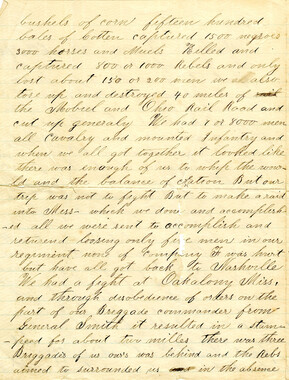 bushels of corn fifteen hundred
bales of Cotton captured 1500 negroes
3000 horses and Muels Killed and
captured 800 or 1000 Rebels and only
lost about 150 or 200 men we also
tore up and destroyed 40 meles of
the Mobeel and Oheo Rail Road and
cut up generaly We had 7 or 8000 men
all Cavalry and mounted Infantry and
when we all got together it looked like
there was enough of us to whip the wor
ld and the balance of Nation But our
trip was not to fight But to make a raid
into Miss- which we don and accomplesh
ed all we were sent to accomplish and
returend loosing only few men in our
regiment none of Company F was hurt
but have all got back to Nashville
We had a fight at Oakalony Miss,
and through desobedience of orders on the
part of our Breggade commander from
General Smith it resulted in a stam
peed for about two milles, there was three
Breggadis of us ours was behind and the Rebs
aimed to surrounded us in the absense